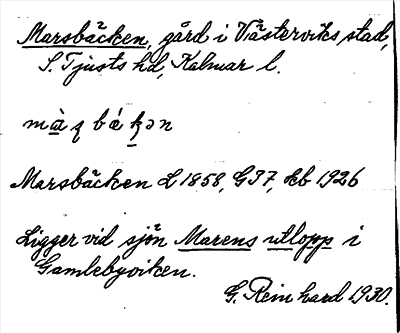 Marsbäcken, gård i Västerviks stad,
S. Tjusts hd, Kalmar l.
Marsbäcken L 1858, G 37, kb 1926
Ligger vid sjön Marens utlopp i
Gamlebyviken.
G. Reinhard 1930.